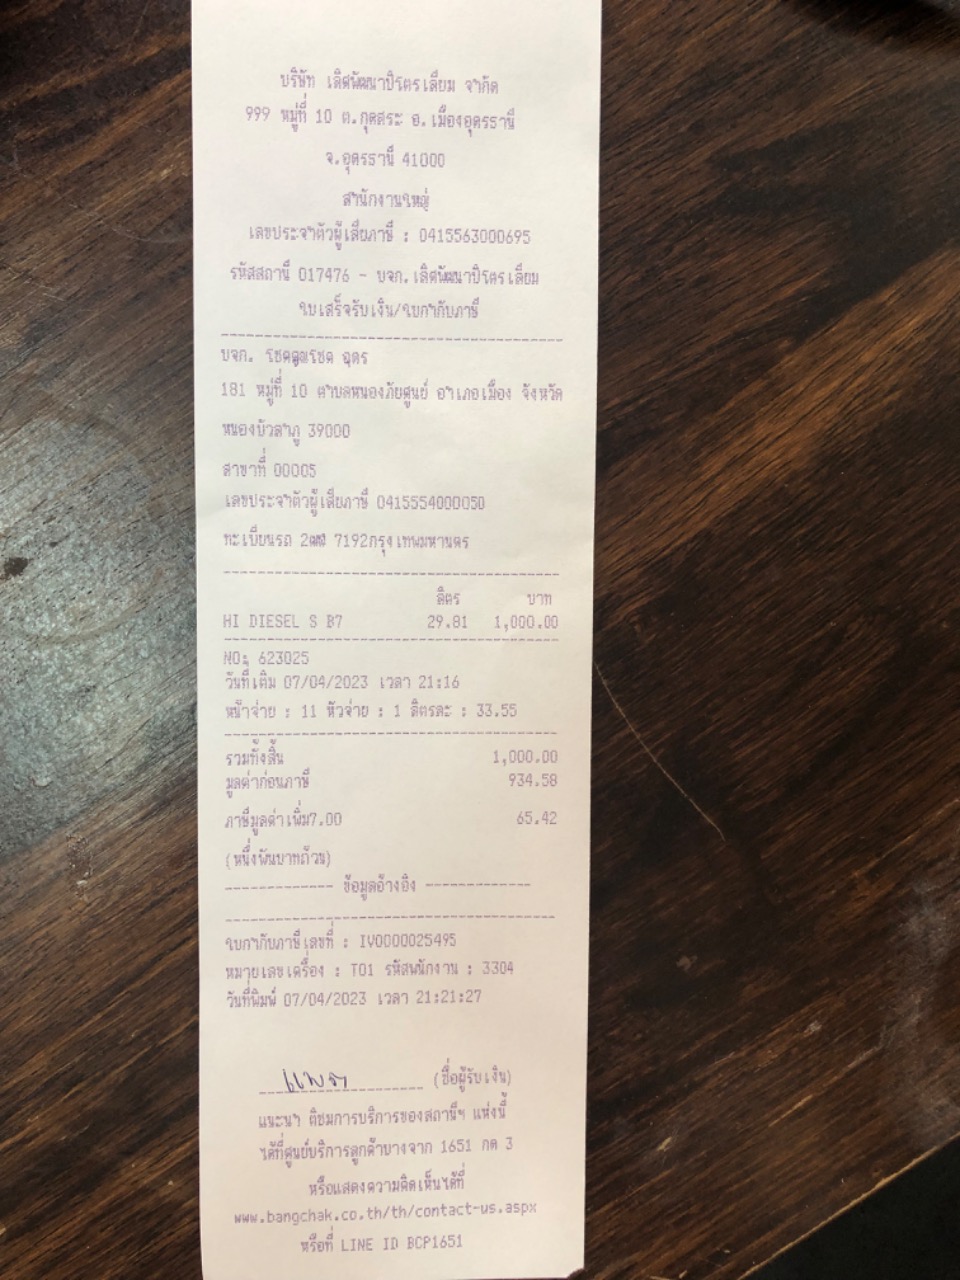 บริษัท เลิศพัฒนาปิโตรเลียม จำกัด
999 หมู่ที่ 10 ต.กุดสระ อ.เมืองอุดรธานี
จ.อุดรธานี 41000
สำนักงานใหญ่
เลขประจำตัวผู้เสียภาษี : 0415563000695
รหัสสถานี 017476 - บจก.เลิศพัฒนาปิโตรเลียม
ใบเสร็จรับเงิน/ใบกำกับภาษี
บจก. โชคคูณโชค อุดร
181 หมู่ที่ 10 ตำบลหนองภัยศูนย์ อำเภอเมือง จังหวัด
หนองบัวลำภู 39000
สาขาที่ 00005
เลขประจำตัวผู้เสียภาษี 0415554000050
ทะเบียนรถ 7192กรุงเทพมหานคร
ลิตร บาท
HI DIESEL S B7 29.81 1,000.00
NO: 623025
วันที่เติม 07/04/2023 เวลา 21:16
หน้าจ่าย : 11 หัวจ่าย : 1 ลิตรละ : 33.55
รวมทั้งสิ้น 1,000.00
มูลค่าก่อนภาษี 934.58
ภาษีมูลค่าเพิ่ม7.00 65.42
(หนึ่งพันบาทถ้วน)
------------- ข้อมูลอ้างอิง -------------
ใบกำกับภาษีเลขที่ : IV0000025495
หมายเลขเครื่อง : T01 รหัสพนักงาน : 3304
วันที่พิมพ์ 07/04/2023 เวลา 21:21:27
(ชื่อผู้รับเงิน)
แนะนำ ติชมการบริการของสถานีฯ แห่งนี้
ได้ที่ศูนย์บริการลูกค้าบางจาก 1651 กด 3
หรือแสดงความคิดเห็นได้ที่
www.bangchak.co.th/th/contact-us.aspx
หรือที่ LINE ID BCP1651